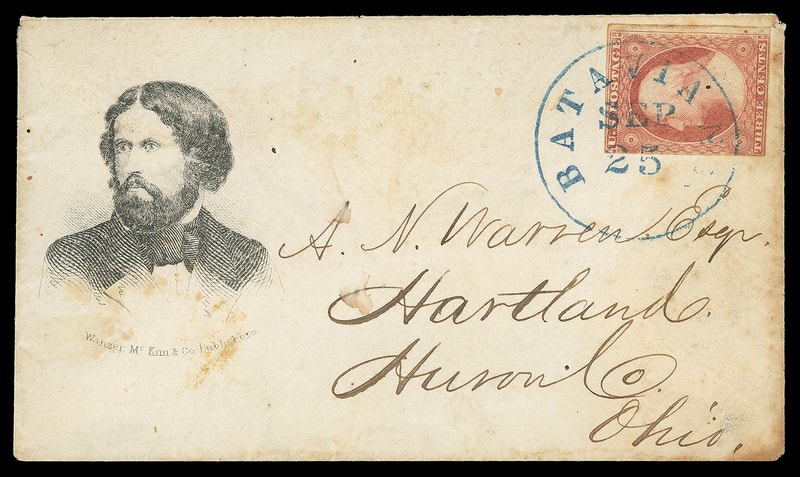 U.S. POSTAGE
THREE CENTS
BATAVIA
SEP
25
A. N. Warren, Esqr.
Hartland.
Huron Co.
Ohio.
Wanzer, Mc Kim & Co. Publishers